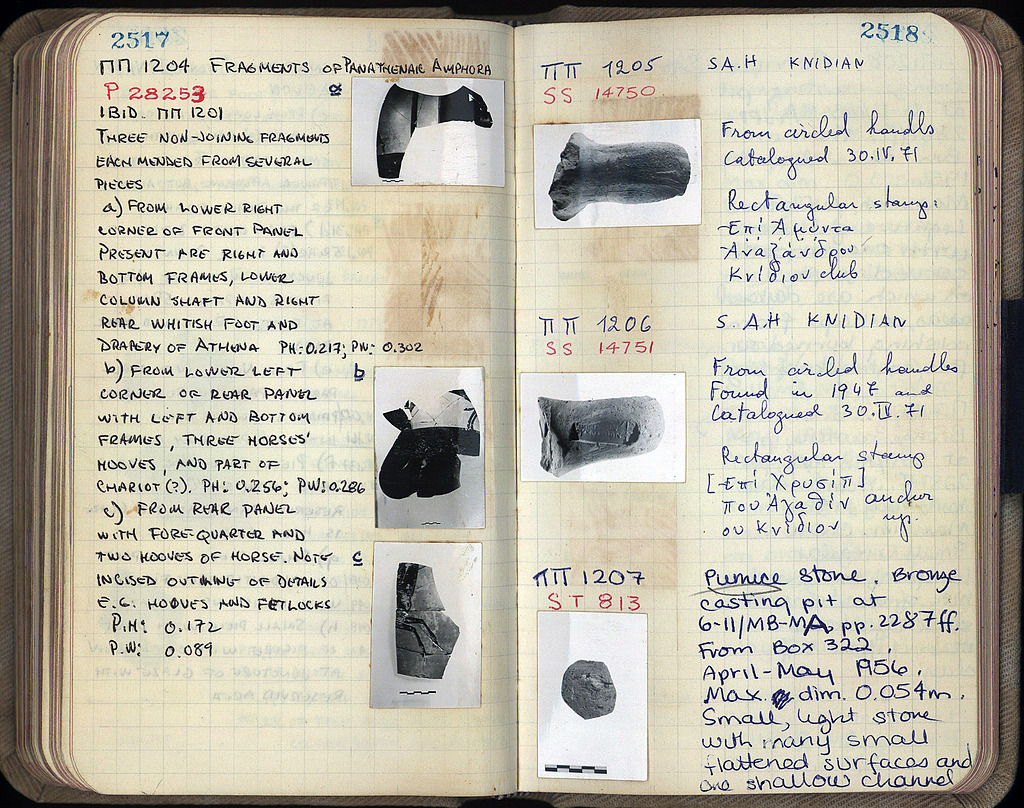 2517
ΠΠ 1204 FRAGMENTS OF PANATHENAIC AMPHORA
P 28253
IBID. ΠΠ 1201
THREE NON-JOINING FRAGMENTS
EACH MENDED FROM SEVERAL
PIECES
a) FROM LOWER RIGHT
CORNER OF FRONT PANEL
PRESENT ARE RIGHT AND
BOTTOM FRAMES, LOWER
COLUMN SHAFT AND RIGHT
REAR WHITISH FOOT AND
DRAPERY OF ATHENA PH: 0.217; PW: 0.302
b) FROM LOWER LEFT
CORNER OF REAR PANEL
WITH LEFT AND BOTTOM
FRAMES, THREE HORSES'
HOOVES, AND PART OF
CHARIOT(?). PH: 0.256; PW: 0.286
c) FROM REAR PANEL
WITH FORE-QUARTER AND
TWO HOOVES OF HORSE. NOTE
INCISED OUTLINING OF DETAILS
E.G. HOOVES AND FETLOCKS
P.H: 0.172
P.W: 0.089
a
b
c
2518
ΠΠ 1205 S.A.H KNIDIAN
SS 14750
From circled handles
Catalogued 30.IV.71
Rectangular stamp:
Ἐπί Ἀμύντα
Ἀναξάνδρου
Κνίδιον club
ΠΠ 1206 S.A.H KNIDIAN
SS 14751
From circled handles
Found in 1947 and
Catalogued 30.IV.71
Rectangular stamp
[Ἐπί Χρυσίπ]
που Ἀγαθίν anchor
ου Κνίδιον up.
ΠΠ 1207
ST 813
Pumice stone. Bronze
casting pit at
6-11/MB-MA, pp. 2287ff.
From Box 322,
April-May 1956.
Max. dim. 0.054m.
Small, light stone
with many small
flattened surfaces and
one shallow channel